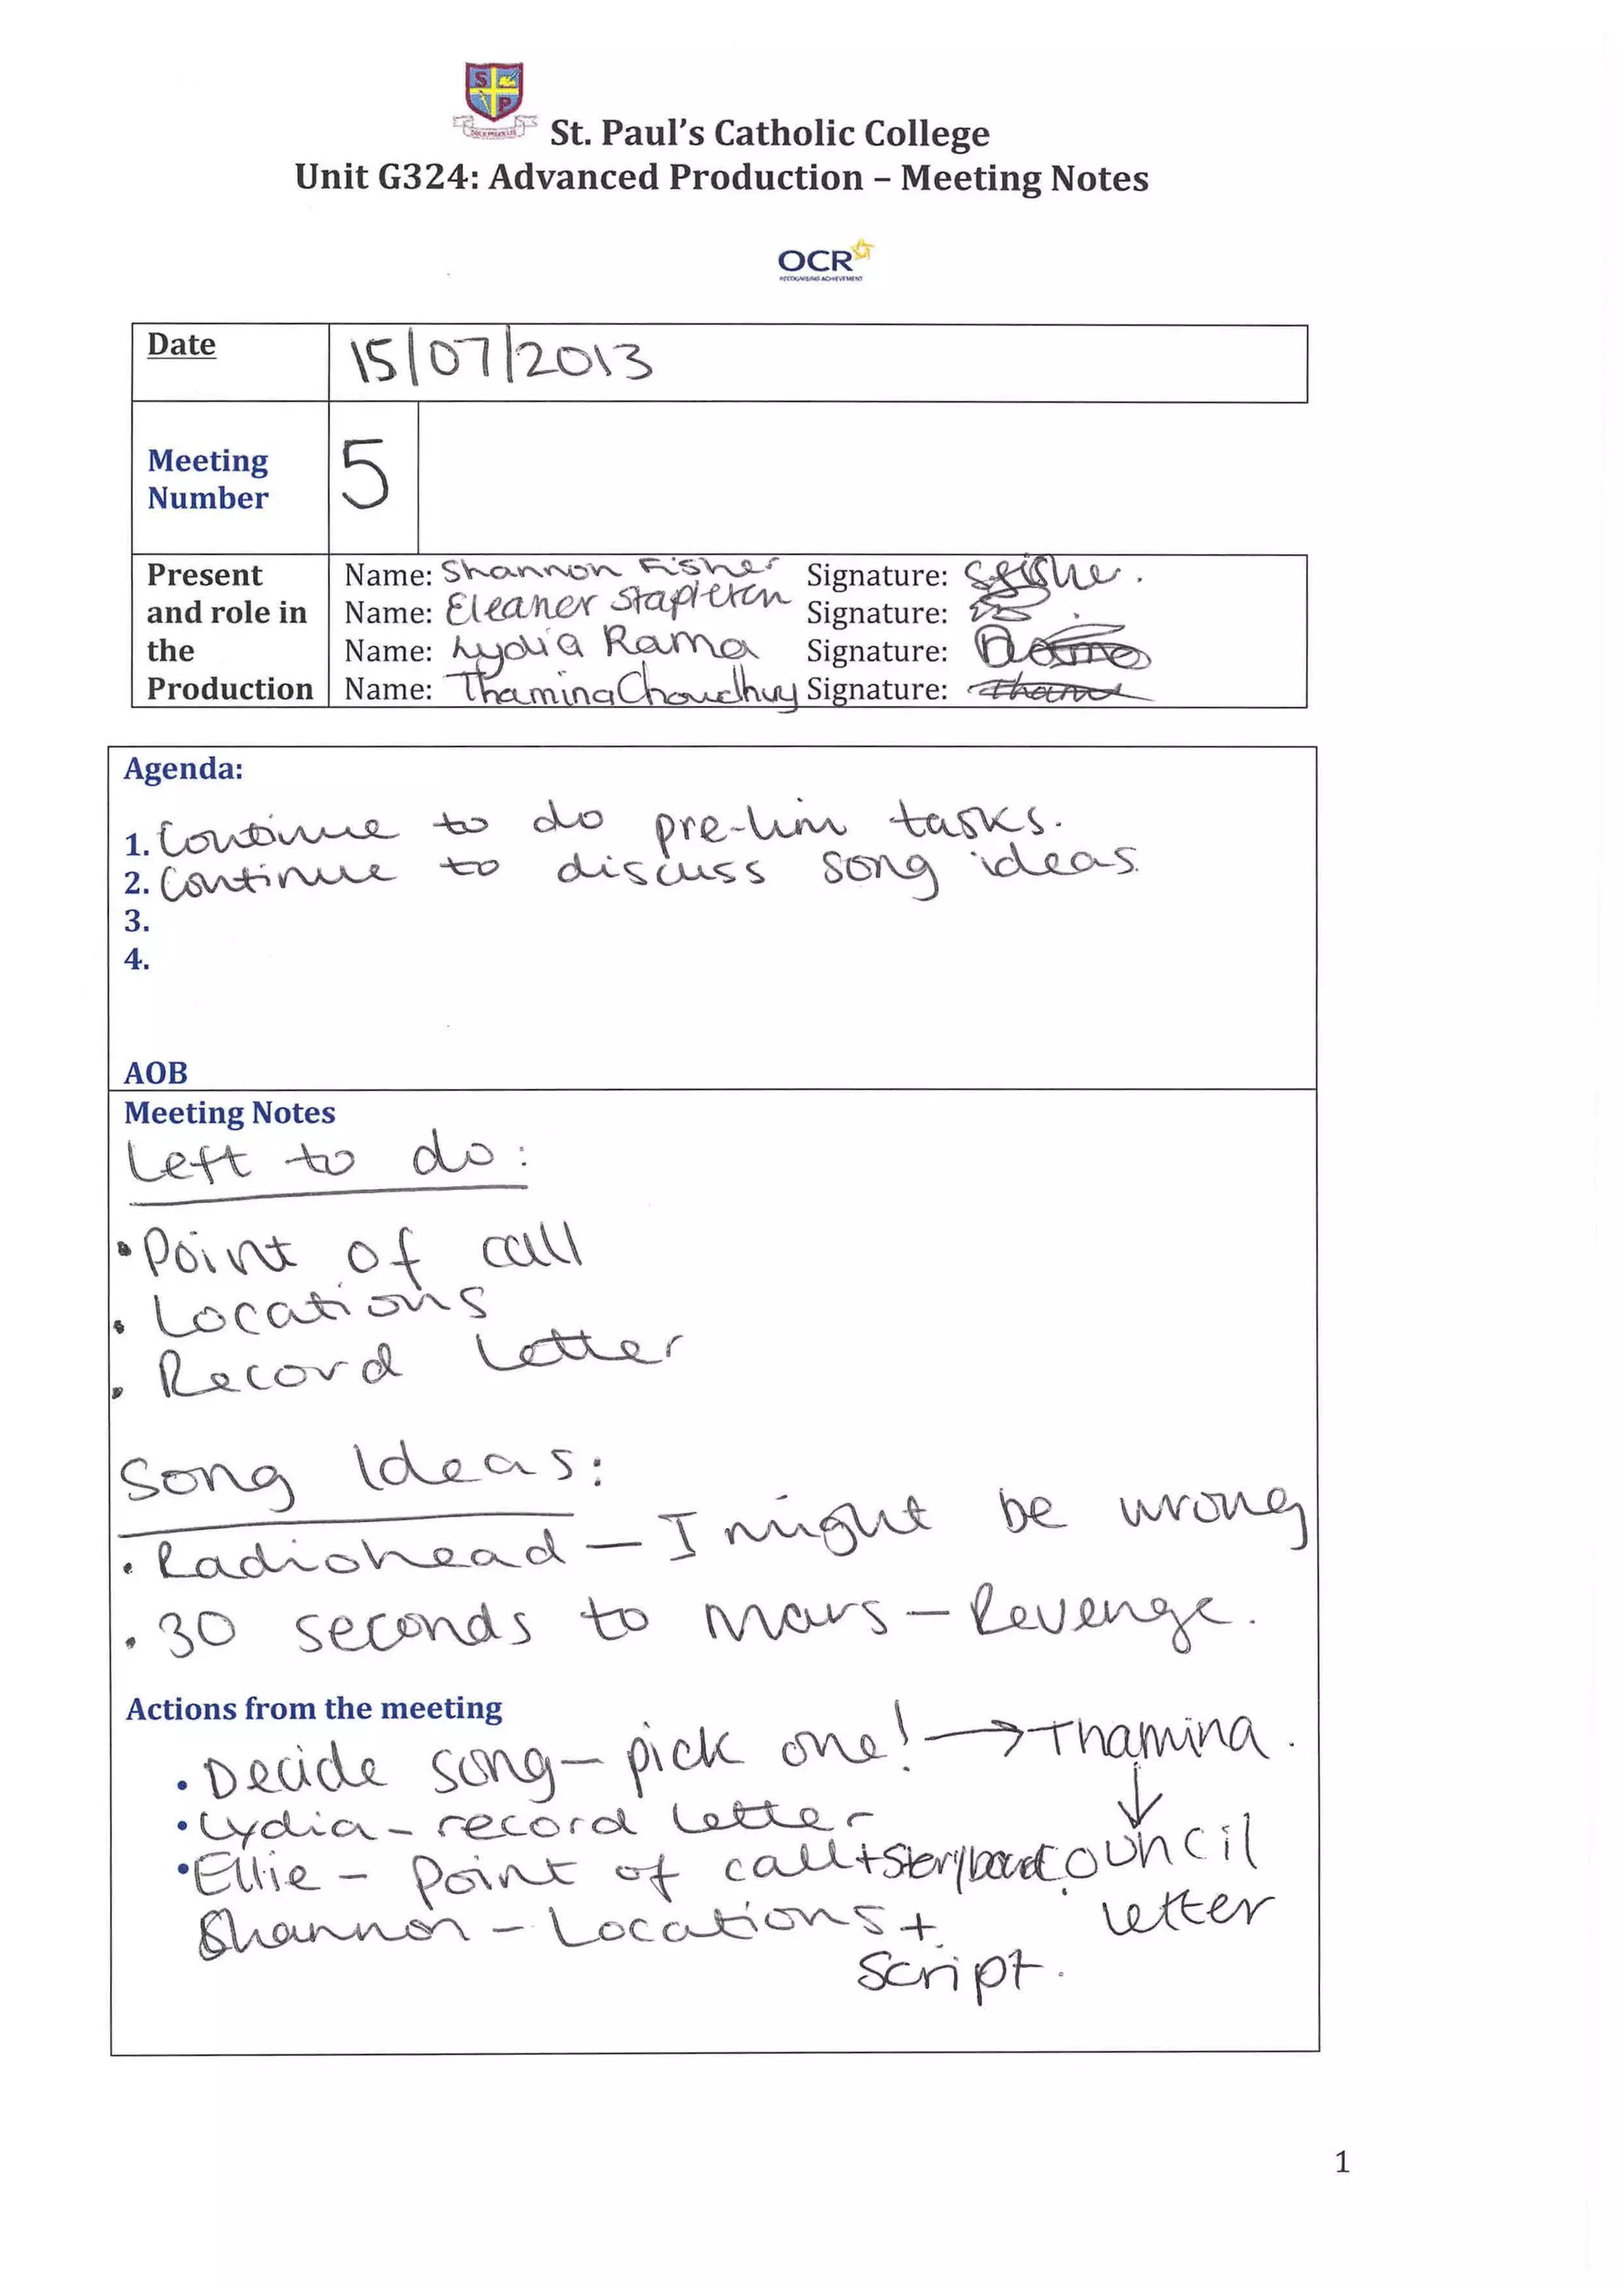 St. Paul's Catholic College
Unit G324: Advanced Production – Meeting Notes
OCR
RECOGNISING ACHIEVEMENT
Date 15/07/2013
Meeting Number 5
Present and role in the Production
Name: Shannon Fisher Signature:
Name: Eleaner Stapleton Signature:
Name: Lydia Rama Signature:
Name: Thamina Choudhury Signature:
Agenda:
1. Continue to do pre-lim tasks.
2. Continue to discuss song ideas.
3.
4.
AOB
Meeting Notes
Left to do:
• Point of call
• Locations
• Record Letter
Song Ideas:
• Radiohead – I might be wrong
• 30 seconds to Mars – Revenge.
Actions from the meeting
• Decide song – pick one! → Thamina.
• Lydia – record letter
• Ellie – Point of call + Storyboard. council
Shannon – Locations + letter
script.
1